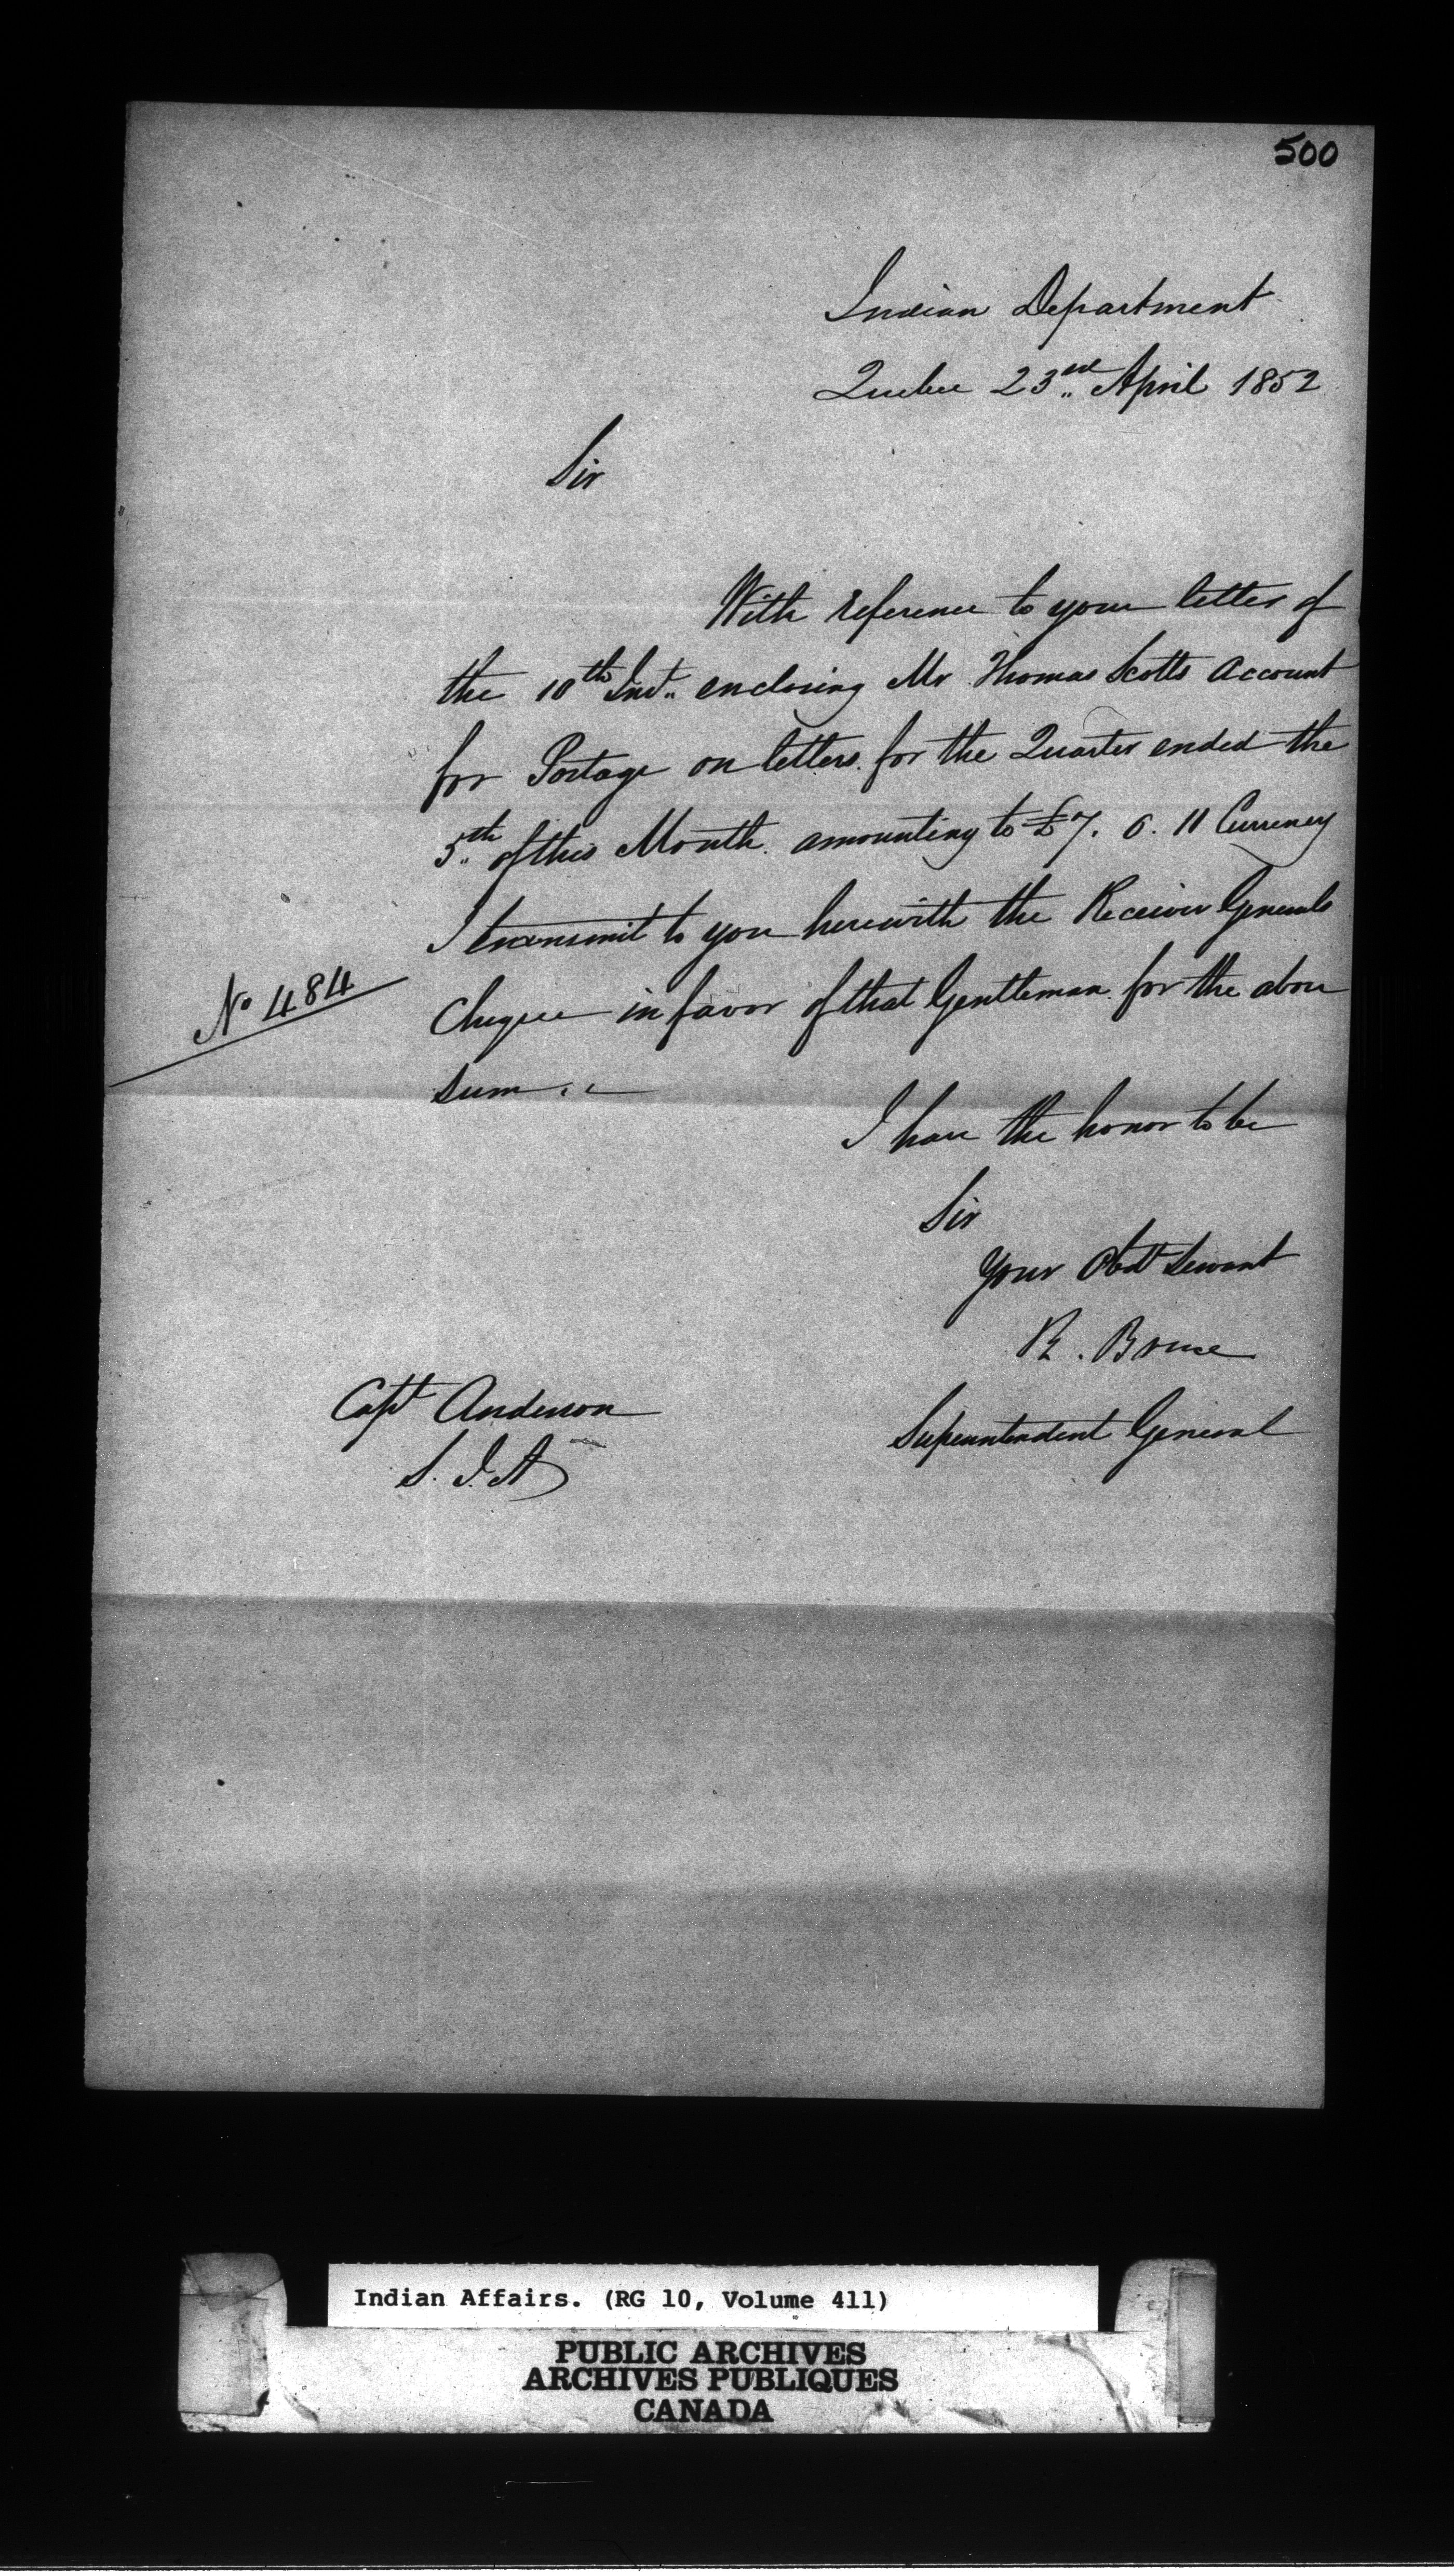 500
Indian Department
Quebec 23rd April 1852
Sir
With reference to your letter of
the 10th Inst. enclosing Mr Thomas Scotts Account
for Postage on letters for the Quarter ended the
5th of this Month amounting to £7. 6. 11 Currency
I transmit to you herewith the Receiver Generals
No 484
Cheque in favor of that Gentleman for the above
sum..
I have the honor to be
Sir
Your Obdt Servant
R. Bruce
Superintendent General
Capt Anderson
S. I. A
Indian Affairs. (RG 10, Volume 411)
PUBLIC ARCHIVES
ARCHIVES PUBLIQUES
CANADA